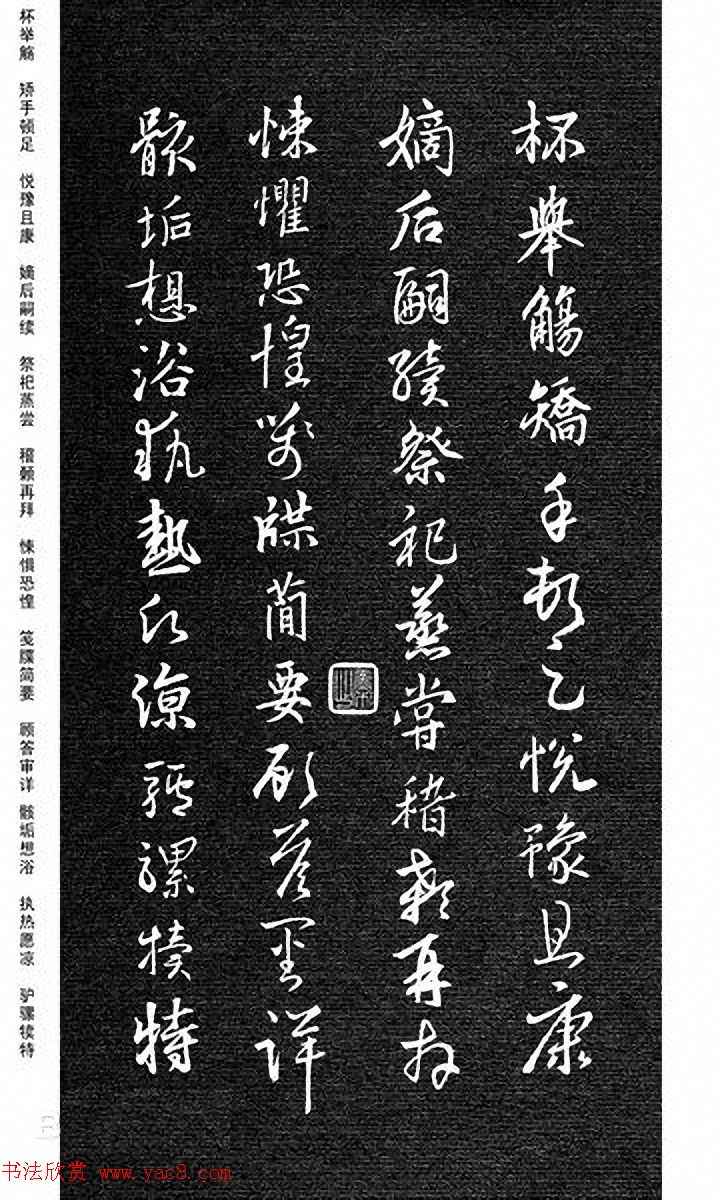 杯舉觴矯手頓足悅豫且康
嫡后嗣續祭祀蒸嘗稽顙再拜
悚懼恐惶箋牒簡要顧答審詳
骸垢想浴執熱願涼驢騾犢特
杯举觞 矫手顿足 悦豫且康 嫡后嗣续 祭祀蒸尝 稽颡再拜 悚惧恐惶 笺牒简要 顾答审详 骸垢想浴 执热愿凉 驴骡犊特
书法欣赏 www.yac8.com